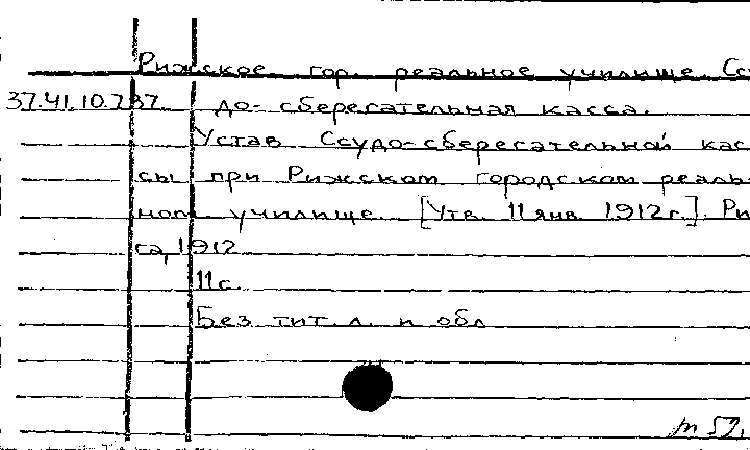 Рижское гор. реальное училище. Ссу
37.41.10.237 до-сберегательная касса.
Устав Ссудо-сберегательной кас
сы при Рижском городском реаль
ном училище. [Утв. 11 янв. 1912 г.]. Ри
га, 1912
11 с.
Без тит. л. и обл